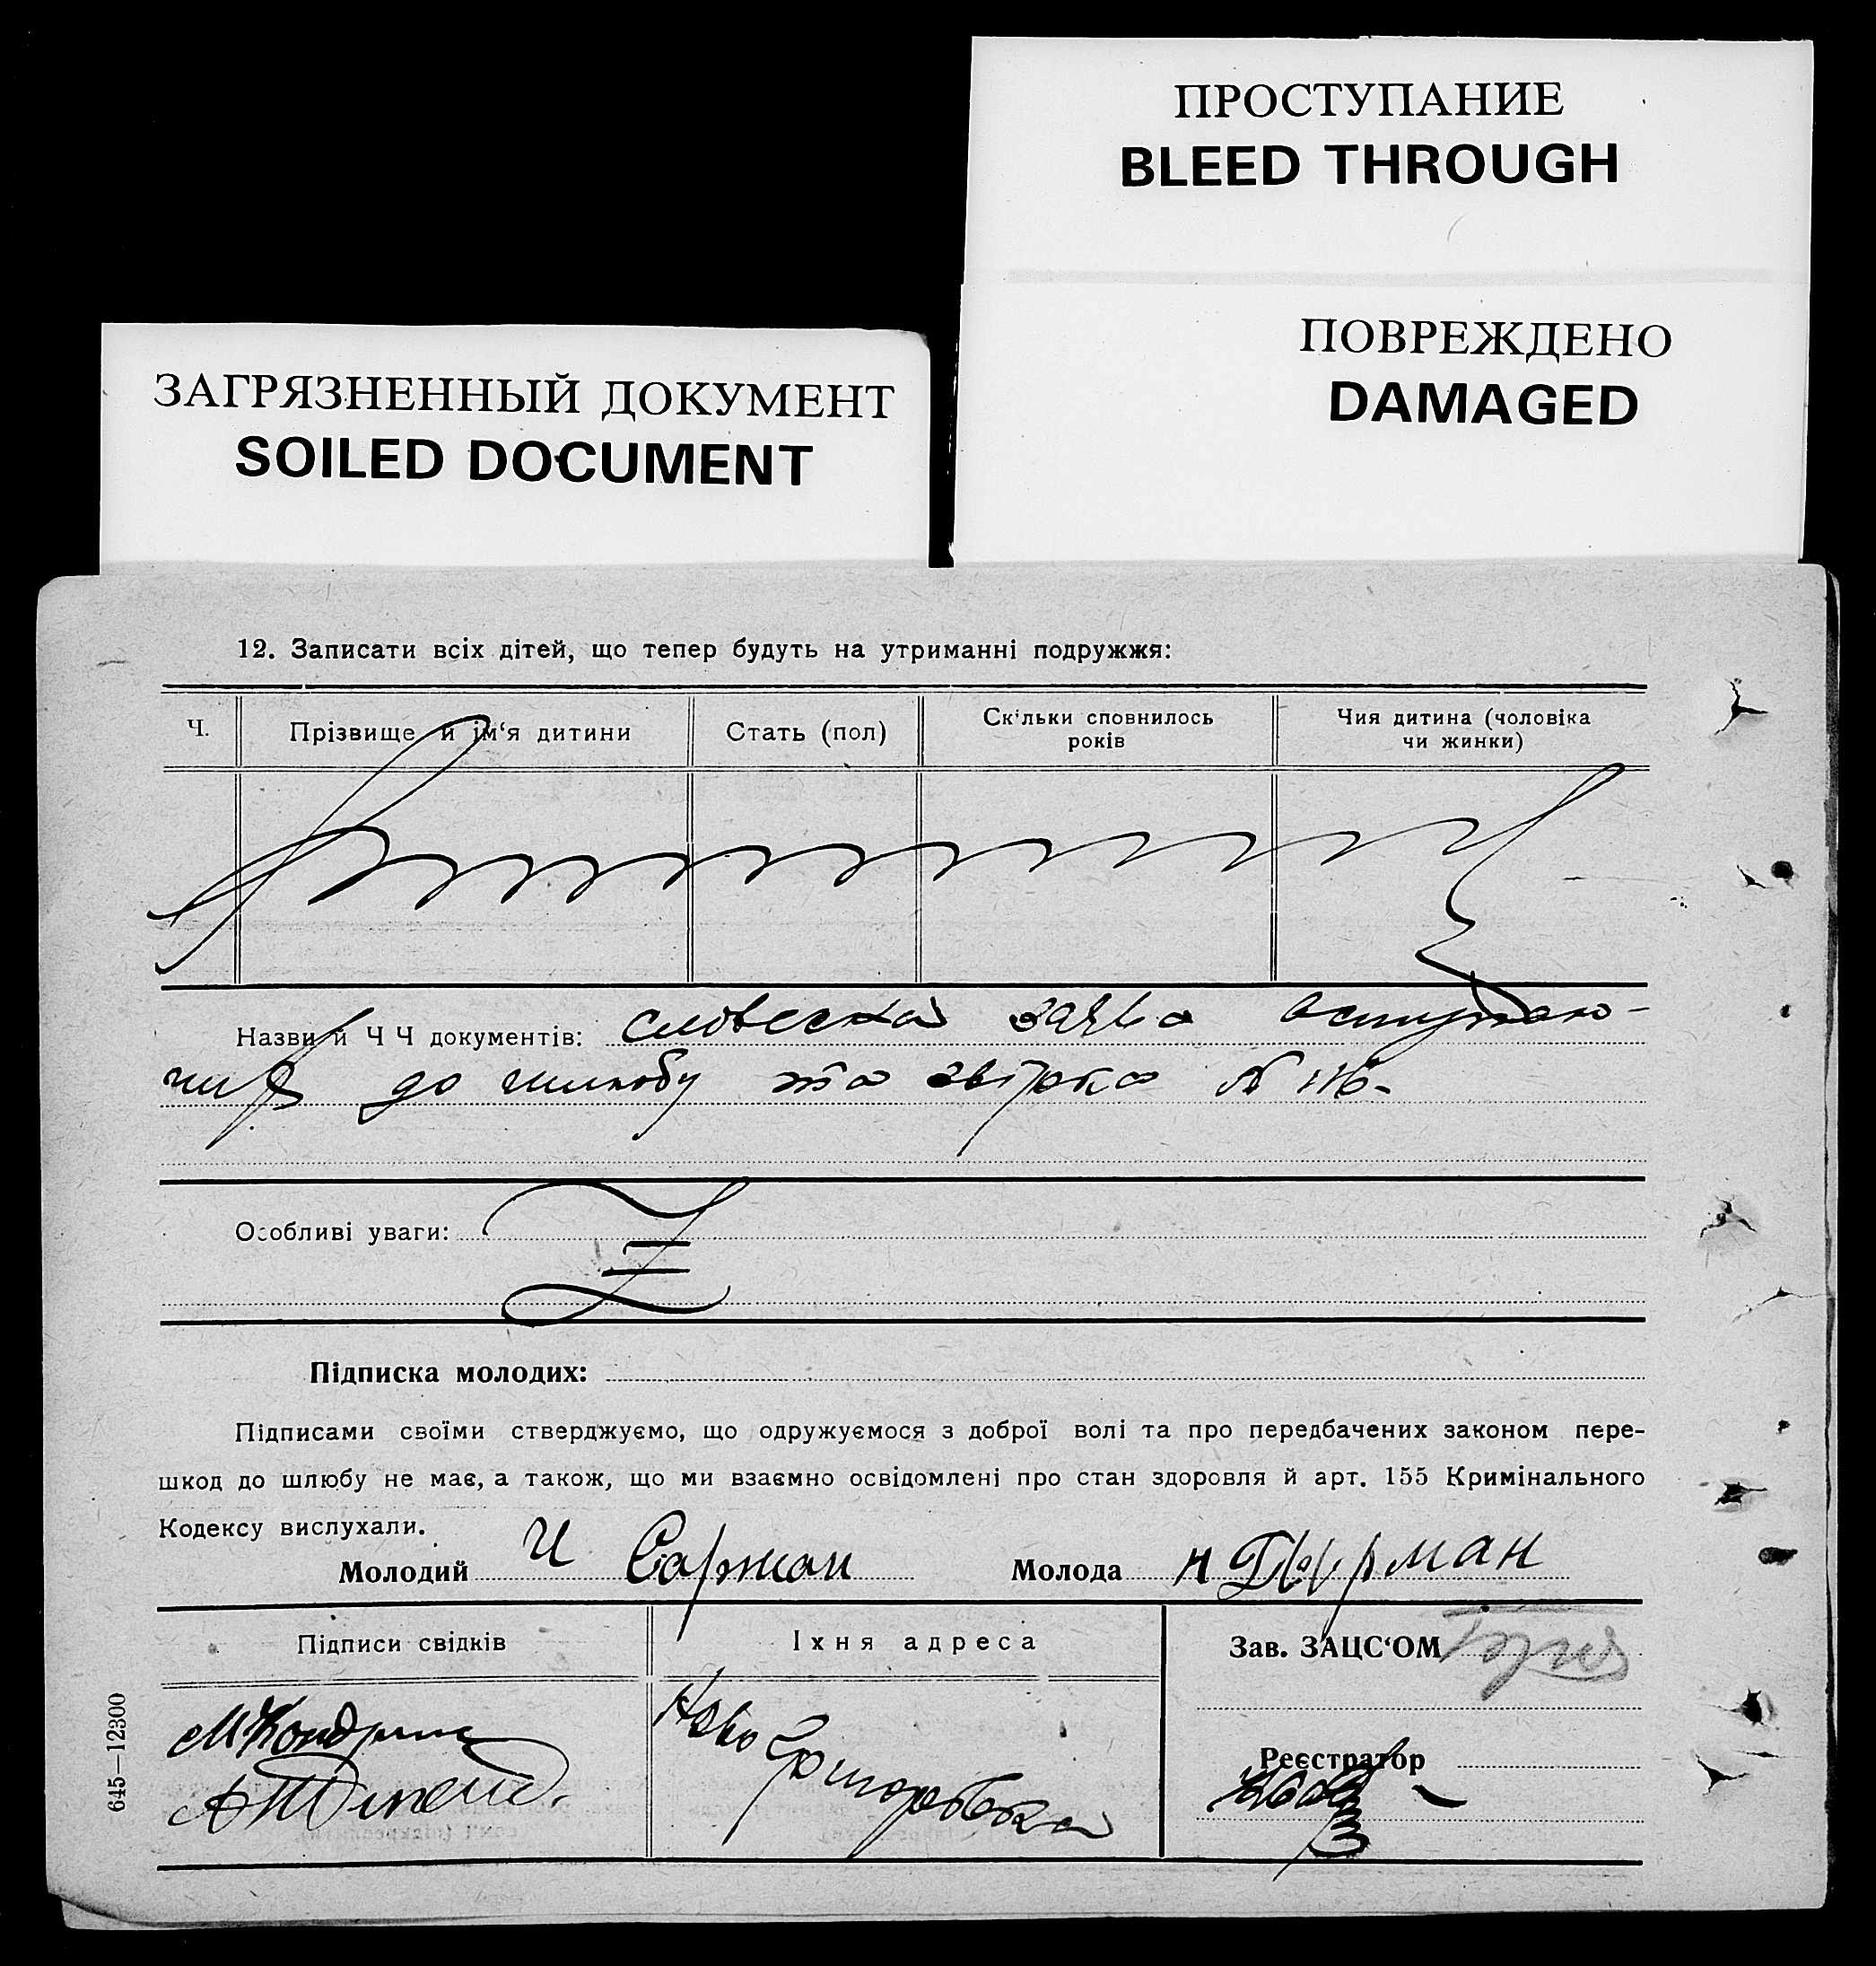 ПРОСТУПАНИЕ
BLEED THROUGH
ПОВРЕЖДЕНО
DAMAGED
ЗАГРЯЗНЕННЫЙ ДОКУМЕНТ
SOILED DOCUMENT
12. Записати всіх дітей, що тепер будуть на утриманні подружжя:
Ч.
Прізвище й ім‘я дитини
Стать (пол)
Скільки сповнилось
років
Чия дитина (чоловіка
чи жинки)
Назви й Ч Ч документів: словесна заява вступаю-
чих до шлюбу та звірка № 116
Особливі уваги:
Підписка молодих:
Підписами своїми стверджуємо, що одружуємося з доброї волі та про передбачених законом пере-
шкод до шлюбу не має, а також, що ми взаємно освідомлені про стан здоровля й арт. 155 Кримінального
Кодексу вислухали.
Молодий И Сарман Молода Н Гурман
Підписи свідків
Їхня адреса
Зав. ЗАЦС‘ОМ
Ново
Григоровка
Реєстратор
645—12300